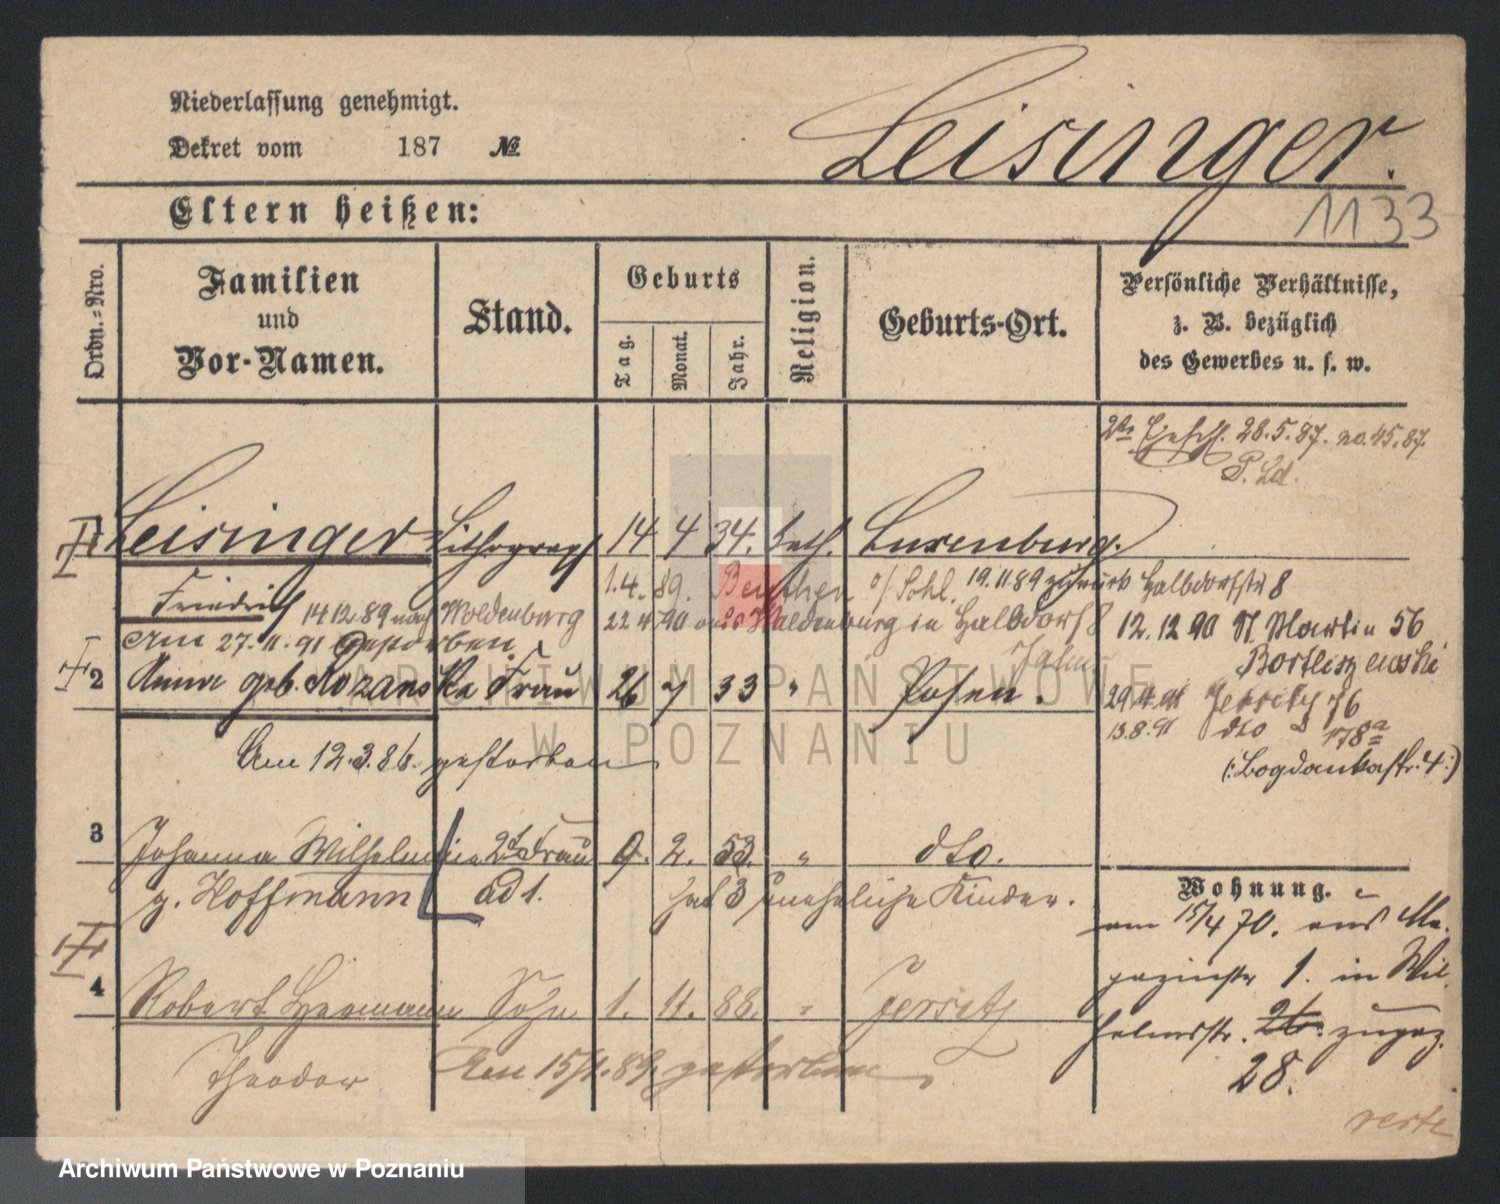 Niederlassung genehmigt.
Dekret vom 187 №
Leisinger.
1133
Eltern heißen:
Ordn.-Nro.
Familien
und
Vor-Namen.
Stand.
Geburts
Tag.
Monat.
Jahr.
Religion.
Geburts-Ort.
Persönliche Verhältnisse,
z. B. bezüglich
des Gewerbes u. s. w.
28.5.87. no. 45.87.
Leisinger Lithograph 14 4 34. kath. Luxenburg.
1.4.89. Beuthen o/Schl. 19.11.89 zurück Halbdorfstr 8
Friedrich 14 12.89 nach Waldenburg 22 4 90 aus Waldenburg in Halbdorf 8
12.12 90 St. Martin 56
Am 27.11.91 gestorben.
2 Anna geb. Rozanska Frau 26 7 33 " Posen.
Jersitz 76
13.8.91 dto 178a
(:Bogdankastr. 4:)
Am 12.3.86. gestorben
3 Johanna Wilhelmine 2te Frau 9. 2. 53. " dto.
g. Hoffmann ad 1. hat 3 uneheliche Kinder.
Wohnung.
am 15/4 70. aus Ma-
gazinstr 1. in Wil-
helmstr. 26. zugez.
28.
4 Robert Hermann Sohn 1. 11. 88. " Jersitz
Theodor Am 15/1.89. gestorben
verte
ARCHIWUM PAŃSTWOWE
W POZNANIU
Archiwum Państwowe w Poznaniu